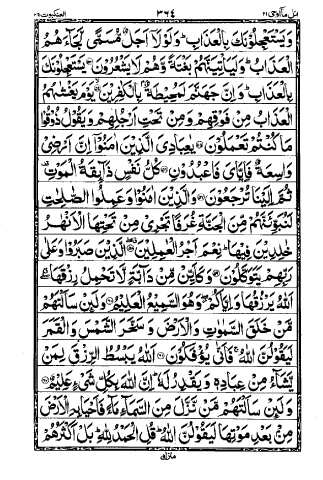 العنكبوت ٢٩ ٣٦٤ اتل مآاوحی ٢١
وَيَسْتَعْجِلُوْنَكَ بِالْعَذَابِ ؕ وَلَوْلَاۤ اَجَلٌ مُّسَمًّى لَّجَآءَهُمُ
الْعَذَابُ ؕ وَلَيَاْتِيَنَّهُمْ بَغْتَةً وَّهُمْ لَا يَشْعُرُوْنَ يَسْتَعْجِلُوْنَكَ
بِالْعَذَابِ ؕ وَاِنَّ جَهَنَّمَ لَمُحِيْطَةٌۢ بِالْكٰفِرِيْنَ يَوْمَ يَغْشٰىهُمُ
الْعَذَابُ مِنْ فَوْقِهِمْ وَمِنْ تَحْتِ اَرْجُلِهِمْ وَيَقُوْلُ ذُوْقُوْا
مَا كُنْتُمْ تَعْمَلُوْنَ يٰعِبَادِيَ الَّذِيْنَ اٰمَنُوْۤا اِنَّ اَرْضِيْ
وَاسِعَةٌ فَاِيَّايَ فَاعْبُدُوْنِ كُلُّ نَفْسٍ ذَآئِقَةُ الْمَوْتِ
ثُمَّ اِلَيْنَا تُرْجَعُوْنَ وَالَّذِيْنَ اٰمَنُوْا وَعَمِلُوا الصّٰلِحٰتِ
لَنُبَوِّئَنَّهُمْ مِّنَ الْجَنَّةِ غُرَفًا تَجْرِيْ مِنْ تَحْتِهَا الْاَنْهٰرُ
خٰلِدِيْنَ فِيْهَا ؕ نِعْمَ اَجْرُ الْعٰمِلِيْنَ الَّذِيْنَ صَبَرُوْا وَعَلٰى
رَبِّهِمْ يَتَوَكَّلُوْنَ وَكَاَيِّنْ مِّنْ دَآبَّةٍ لَّا تَحْمِلُ رِزْقَهَا
اللّٰهُ يَرْزُقُهَا وَاِيَّاكُمْ وَهُوَ السَّمِيْعُ الْعَلِيْمُ وَلَئِنْ سَاَلْتَهُمْ
مَّنْ خَلَقَ السَّمٰوٰتِ وَالْاَرْضَ وَسَخَّرَ الشَّمْسَ وَالْقَمَرَ
لَيَقُوْلُنَّ اللّٰهُ ۚ فَاَنّٰى يُؤْفَكُوْنَ اَللّٰهُ يَبْسُطُ الرِّزْقَ لِمَنْ
يَّشَآءُ مِنْ عِبَادِهٖ وَيَقْدِرُ لَهٗ ؕ اِنَّ اللّٰهَ بِكُلِّ شَيْءٍ عَلِيْمٌ
وَلَئِنْ سَاَلْتَهُمْ مَّنْ نَّزَّلَ مِنَ السَّمَآءِ مَآءً فَاَحْيَا بِهِ الْاَرْضَ
مِنْۢ بَعْدِ مَوْتِهَا لَيَقُوْلُنَّ اللّٰهُ ؕ قُلِ الْحَمْدُ لِلّٰهِ ؕ بَلْ اَكْثَرُهُمْ